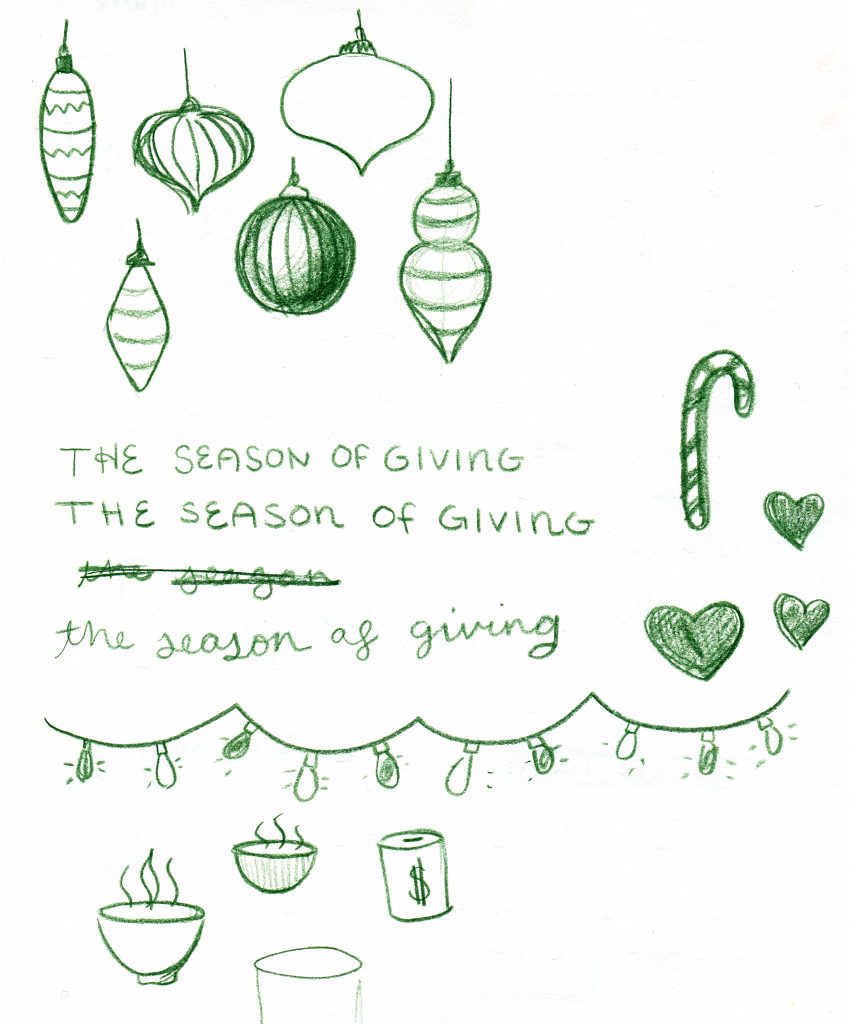 THE SEASON OF GIVING
THE SEASON OF GIVING
the season
the season of giving
$